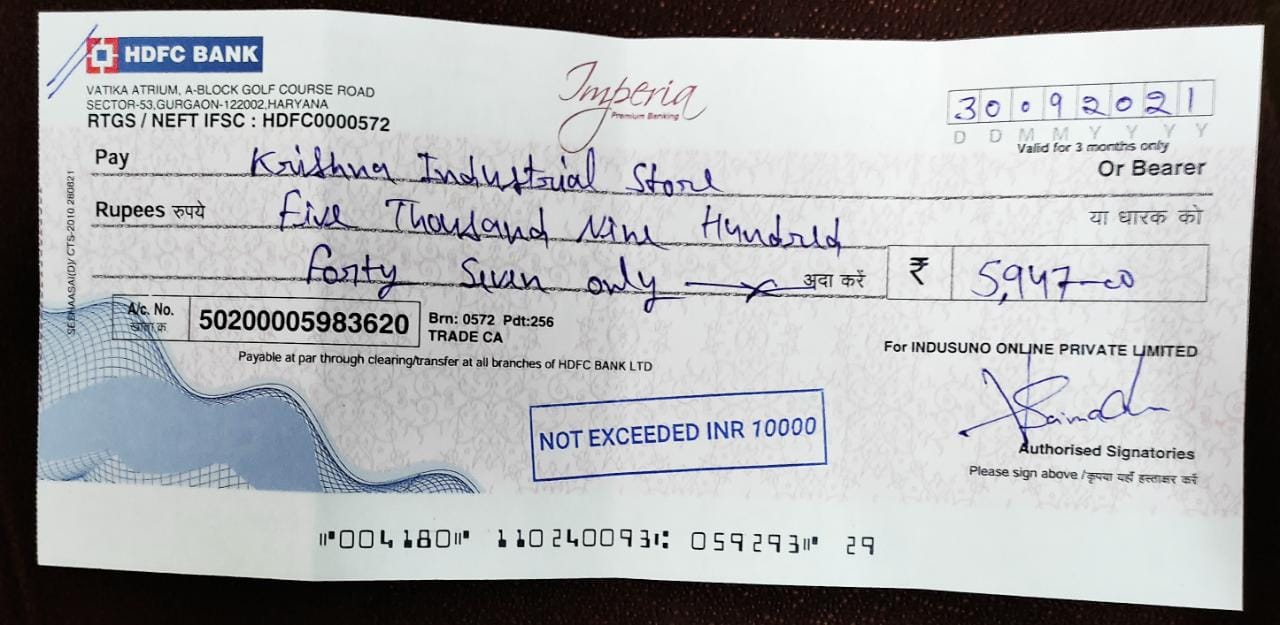 HDFC BANK
VATIKA ATRIUM, A-BLOCK GOLF COURSE ROAD
SECTOR-53,GURGAON-122002,HARYANA
RTGS / NEFT IFSC : HDFC0000572
Imperia
Premium Banking
30092021
D D M M Y Y Y Y
Valid for 3 months only
Pay Krishna Industrial Store Or Bearer
Rupees रुपये Five Thousand Nine Hundred या धारक को
forty Seven only अदा करें ₹ 5,947-00
A/c. No. 50200005983620 Brn: 0572 Pdt:256
खाता क्र. TRADE CA
Payable at par through clearing/transfer at all branches of HDFC BANK LTD
For INDUSUNO ONLINE PRIVATE LIMITED
NOT EXCEEDED INR 10000
Authorised Signatories
Please sign above / कृपया यहाँ हस्ताक्षर करें
⑈004180⑈ 110240093⑆ 059293⑈ 29
CTS-2010 280821